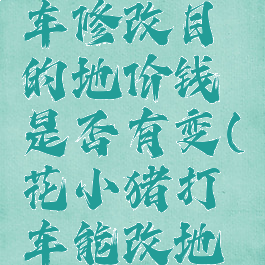 车修改目
的地价钱
是否有变(
花小猪打
车能改地